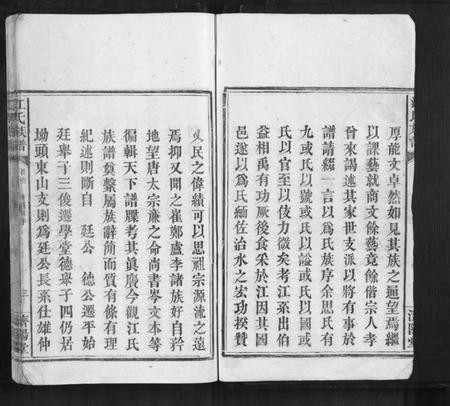 厚能文卓然如見其族之遹望焉繼
以課藝就商文餘藝竟餘偕宗人孝
曾來謁述其家世支派以將有事於
譜請綴一言以爲氏族序余思氏有
九或氏以號或氏以謚或氏以國或
氏以官至以伎力微矣考江系出伯
益相禹有功厥後食采於江因其國
邑遂以爲氏緬佐治水之宏功揆贊
乂民之偉績可以思祖宗源流之遠
焉抑又聞之崔鄭盧李諸族好自矜
地望唐太宗廉之命尚書岑文本等
徧輯天下譜牒考其眞廣今觀江氏
族譜奠繫屬族辭簡而質有條有理
紀述則斷自 廷公 德公遷平始
廷舉子三後遷學堂德舉子四仍居
坳頭東山支則爲廷公長系仕雄仲
江氏族譜
濟陽堂